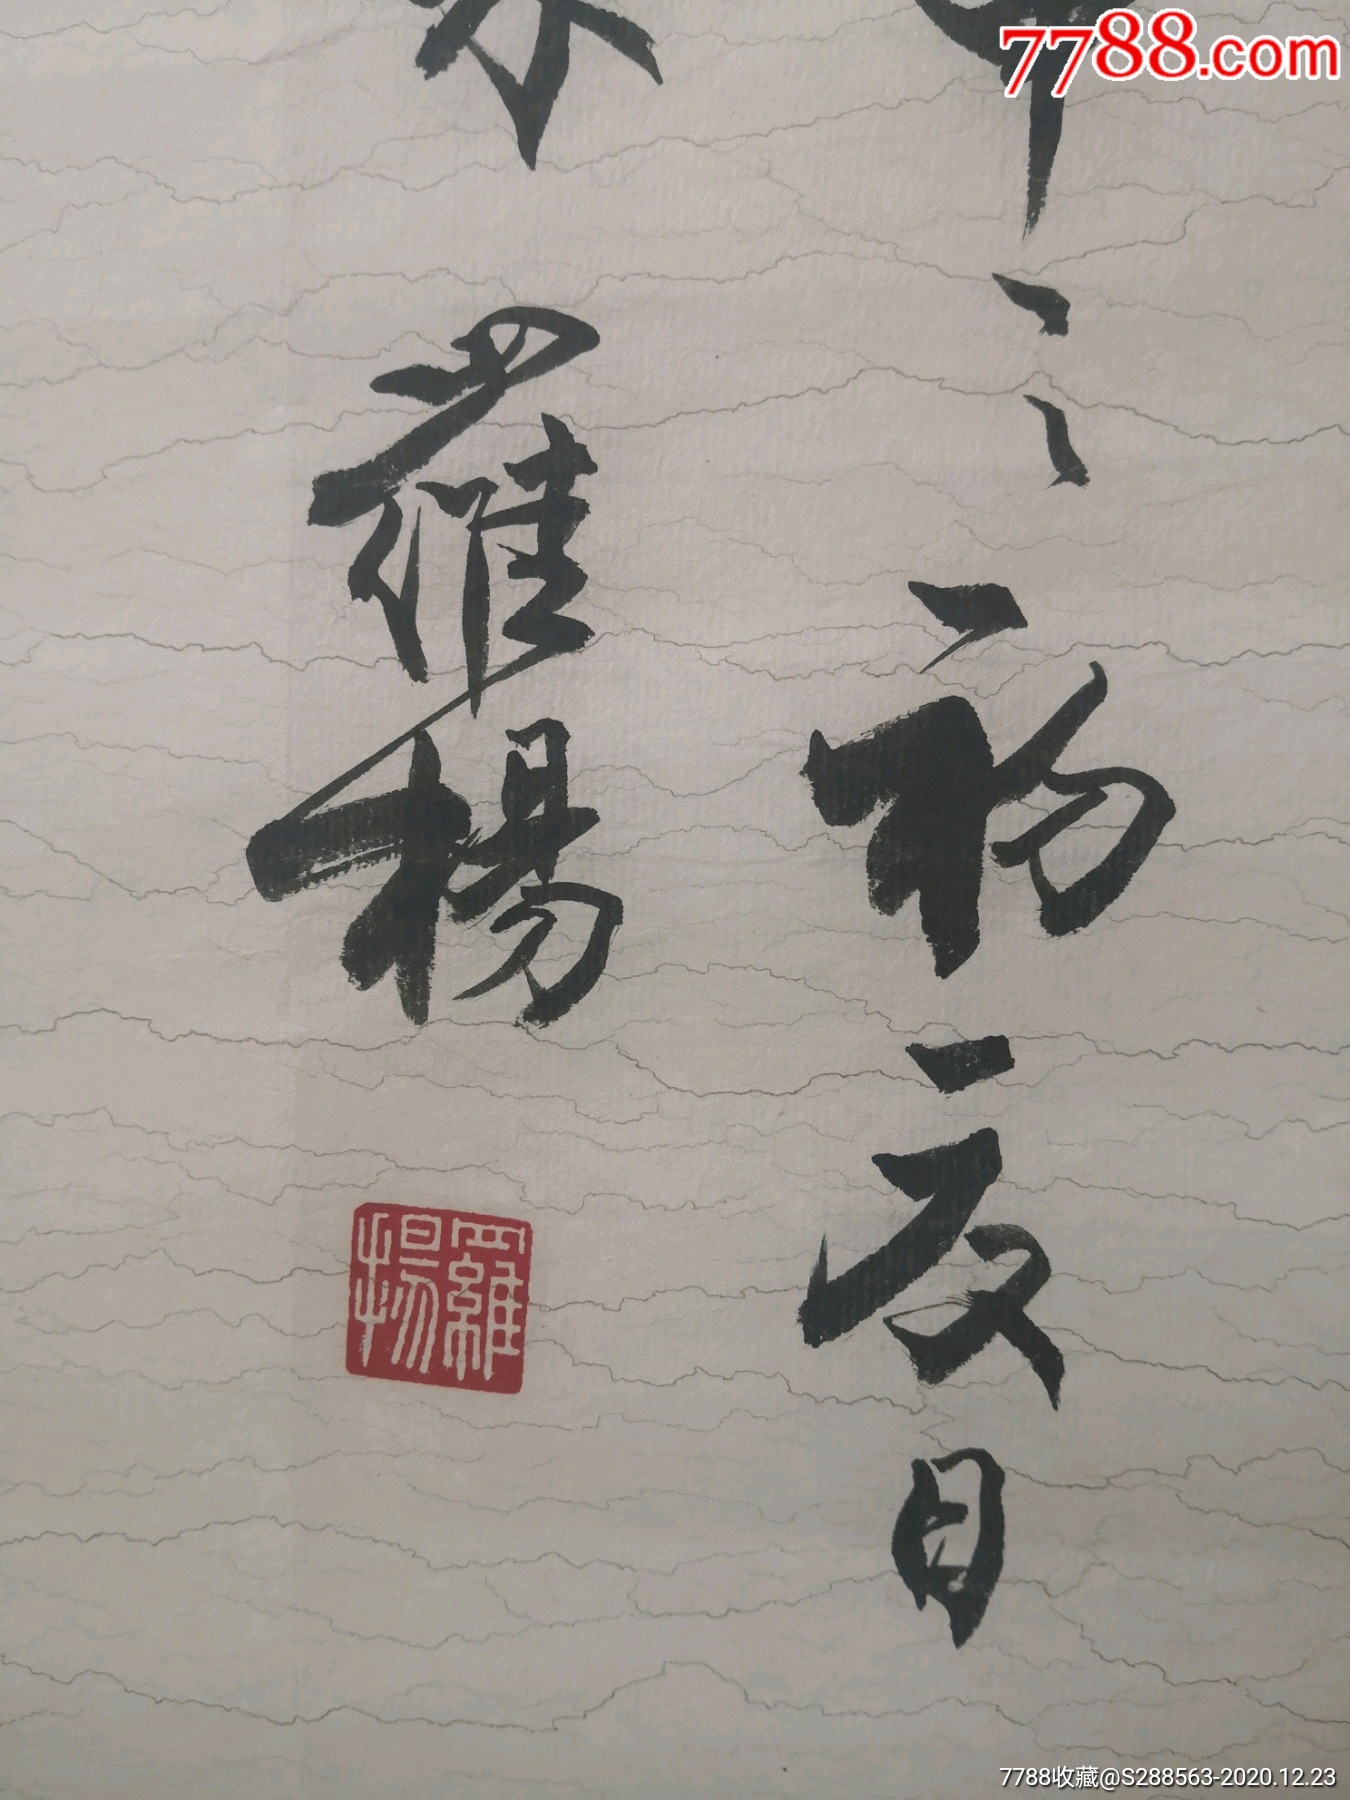 7788.com
之初夏日
羅楊
羅楊
7788收藏@S288563-2020.12.23